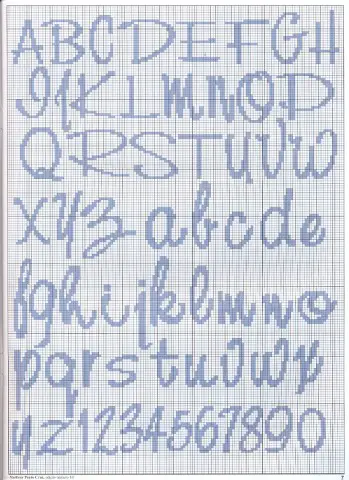 ABCDEFGH
IJKLMNOP
QRSTUVW
XYZabcde
fghijklmno
pqrstuvwx
yz1234567890
7